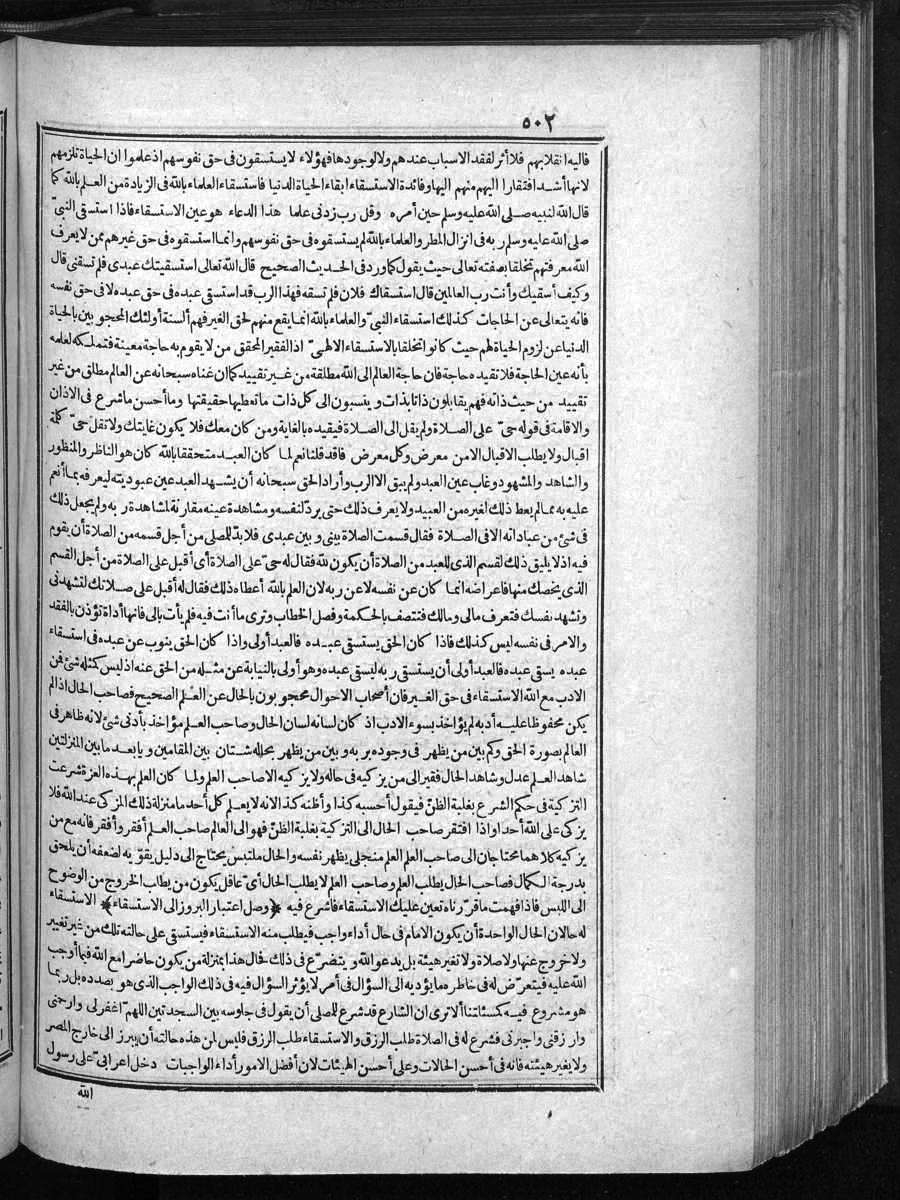 ٥٠٢
فاليه انقلابهم فلا أثر لفقد الاسباب عندهم ولا لوجودها فهؤلاء لا يستسقون فى حق نفوسهم اذ علموا ان الحياة تلزمهم
لانها أشد افتقارا اليهم منهم اليها وفائدة الاستسقاء ابقاء الحياة الدنيا فاستسقاء العلماء بالله فى الزيادة من العلم بالله كما
قال الله لنبيه صلى الله عليه وسلم حين أمره وقل رب زدنى علما هذا الدعاء هو عين الاستسقاء فاذا استسقى النبىّ
صلى الله عليه وسلم ربه فى انزال المطر والعلماء بالله لم يستسقوه فى حق نفوسهم وانما استسقوه فى حق غيرهم ممن لا يعرف
الله معرفتهم تخلقا بصفته تعالى حيث يقول كما ورد فى الحديث الصحيح قال الله تعالى استسقيتك عبدى فلم تسقنى قال
وكيف أسقيك وأنت رب العالمين قال استسقاك فلان فلم تسقه فهذا الرب قد استسقى عبده فى حق عبده لا فى حق نفسه
فانه يتعالى عن الحاجات كذلك استسقاء النبىّ والعلماء بالله انما يقع منهم لحق الغير فهم ألسنة أولئك المحجوبين بالحياة
الدنيا عن لزوم الحياة لهم حيث كانوا تخلقا بالاستسقاء الالهىّ اذ الفقير المحقق من لا يقوم به حاجة معينة فتملكه لعلمه
بأنه عين الحاجة فلا تقيده حاجة فان حاجة العالم الى الله مطلقة من غير تقييد كما ان غناه سبحانه عن العالم مطلق من غير
تقييد من حيث ذاته فهم يقابلون ذاتا بذات وينسبون الى كل ذات ما تعطيها حقيقتها وما أحسن ما شرع فى الاذان
والاقامة فى قوله حىّ على الصلاة ولم يقل الى الصلاة فيقيده بالغاية ومن كان معك فلا يكون غايتك ولا تقل حىّ كلمة
اقبال ولا يطلب الاقبال الا من معرض وكل معرض فاقد قلنا نعم لما كان العبد متحققا بالله كان هو الناظر والمنظور
والشاهد والمشهود وغاب عين العبد ولم يبق الا الرب وأراد الحق سبحانه أن يشهد العبد عين عبوديته ليعرفه بما أنعم
عليه به مما لم يعط ذلك لغيره من العبيد ولا يعرف ذلك حتى يردّ لنفسه ومشاهدة عينه مقارنة لمشاهدة ربه ولم يجعل ذلك
فى شئ من عباداته الا فى الصلاة فقال قسمت الصلاة بينى وبين عبدى فلا بدّ للمصلى من أجل قسمه من الصلاة أن يقوم
فيه اذ لا يليق ذلك القسم الذى للعبد من الصلاة أن يكون لله فقال له حىّ على الصلاة أى أقبل على الصلاة من أجل القسم
الذى يخصك منها فاعراضه انما كان عن نفسه لا عن ربه لان العلم بالله أعطاه ذلك فقال له أقبل على صلاتك لتشهدنى
وتشهد نفسك فتعرف مالى ومالك فتتصف بالحكمة وفصل الخطاب وترى ما أنت فيه فلم يأت بالى فانها أداة تؤذن بالفقد
والامر فى نفسه ليس كذلك فاذا كان الحق يستسقى عبده فالعبد أولى واذا كان الحق ينوب عن عبده فى استسقاء
عبده يسقى عبده فالعبد أولى أن يستسقى ربه ليسقى عبده وهو أولى بالنيابة عن مثله من الحق عنه اذ ليس كمثله شئ فمن
الادب مع الله الاستسقاء فى حق الغير فان أصحاب الاحوال محجوبون بالحال عن العلم الصحيح فصاحب الحال اذا لم
يكن محفوظا عليه أدبه لم يؤاخذ بسوء الادب اذ كان لسانه لسان الحال وصاحب العلم مؤاخذ بأدنى شئ لانه ظاهر فى
العالم بصورة الحق وكم بين من يظهر فى وجوده بربه وبين من يظهر بحاله شتان بين المقامين ويا بعد ما بين المنزلتين
شاهد العلم عدل وشاهد الحال فقير الى من يزكيه فى حاله ولا يزكيه الا صاحب العلم ولما كان العلم بهذه العزة شرعت
التزكية فى حكم الشرع بغلبة الظنّ فيقول أحسبه كذا وأظنه كذا لانه لا يعلم كل أحد ما منزلة ذلك المزكى عند الله فلا
يزكى على الله أحدا واذا افتقر صاحب الحال الى التزكية بغلبة الظنّ فهو الى العالم صاحب العلم أفقر وأفقر فانه مع من
يزكيه كلاهما محتاجان الى صاحب العلم العلم منجلى يظهر نفسه والحال ملتبس يحتاج الى دليل يقوّيه لضعفه أن يلحق
بدرجة الكمال فصاحب الحال يطلب العلم وصاحب العلم لا يطلب الحال أىّ عاقل يكون من يطلب الخروج من الوضوح
الى اللبس فاذا فهمت ما قرّرناه تعين عليك الاستسقاء فاشرع فيه ﴿وصل اعتبار البروز الى الاستسقاء﴾ الاستسقاء
له حالان الحال الواحدة أن يكون الامام فى حال أداء واجب فيطلب منه الاستسقاء فيستسقى على حالته تلك من غير تغيير
ولا خروج عنها ولا صلاة ولا تغير هيئة بل يدعو الله ويتضرّع فى ذلك فحال هذا بمنزلة من يكون حاضرا مع الله فيما أوجب
الله عليه فيتعرّض له فى خاطره ما يؤديه الى السؤال فى أمر لا يؤثر السؤال فيه فى ذلك الواجب الذى هو بصدده بل ربما
هو مشروع فيه كمسئلتنا ألا ترى ان الشارع قد شرع للمصلى أن يقول فى جلوسه بين السجدتين اللهمّ اغفر لى وارحمنى
وارزقنى واجبرنى فشرع له فى الصلاة طلب الرزق والاستسقاء طلب الرزق فليس لمن هذه حالته أن يبرز الى خارج المصر
ولا يغير هيئته فانه فى أحسن الحالات وعلى أحسن الهيئات لان أفضل الامور أداء الواجبات دخل اعرابىّ على رسول
الله